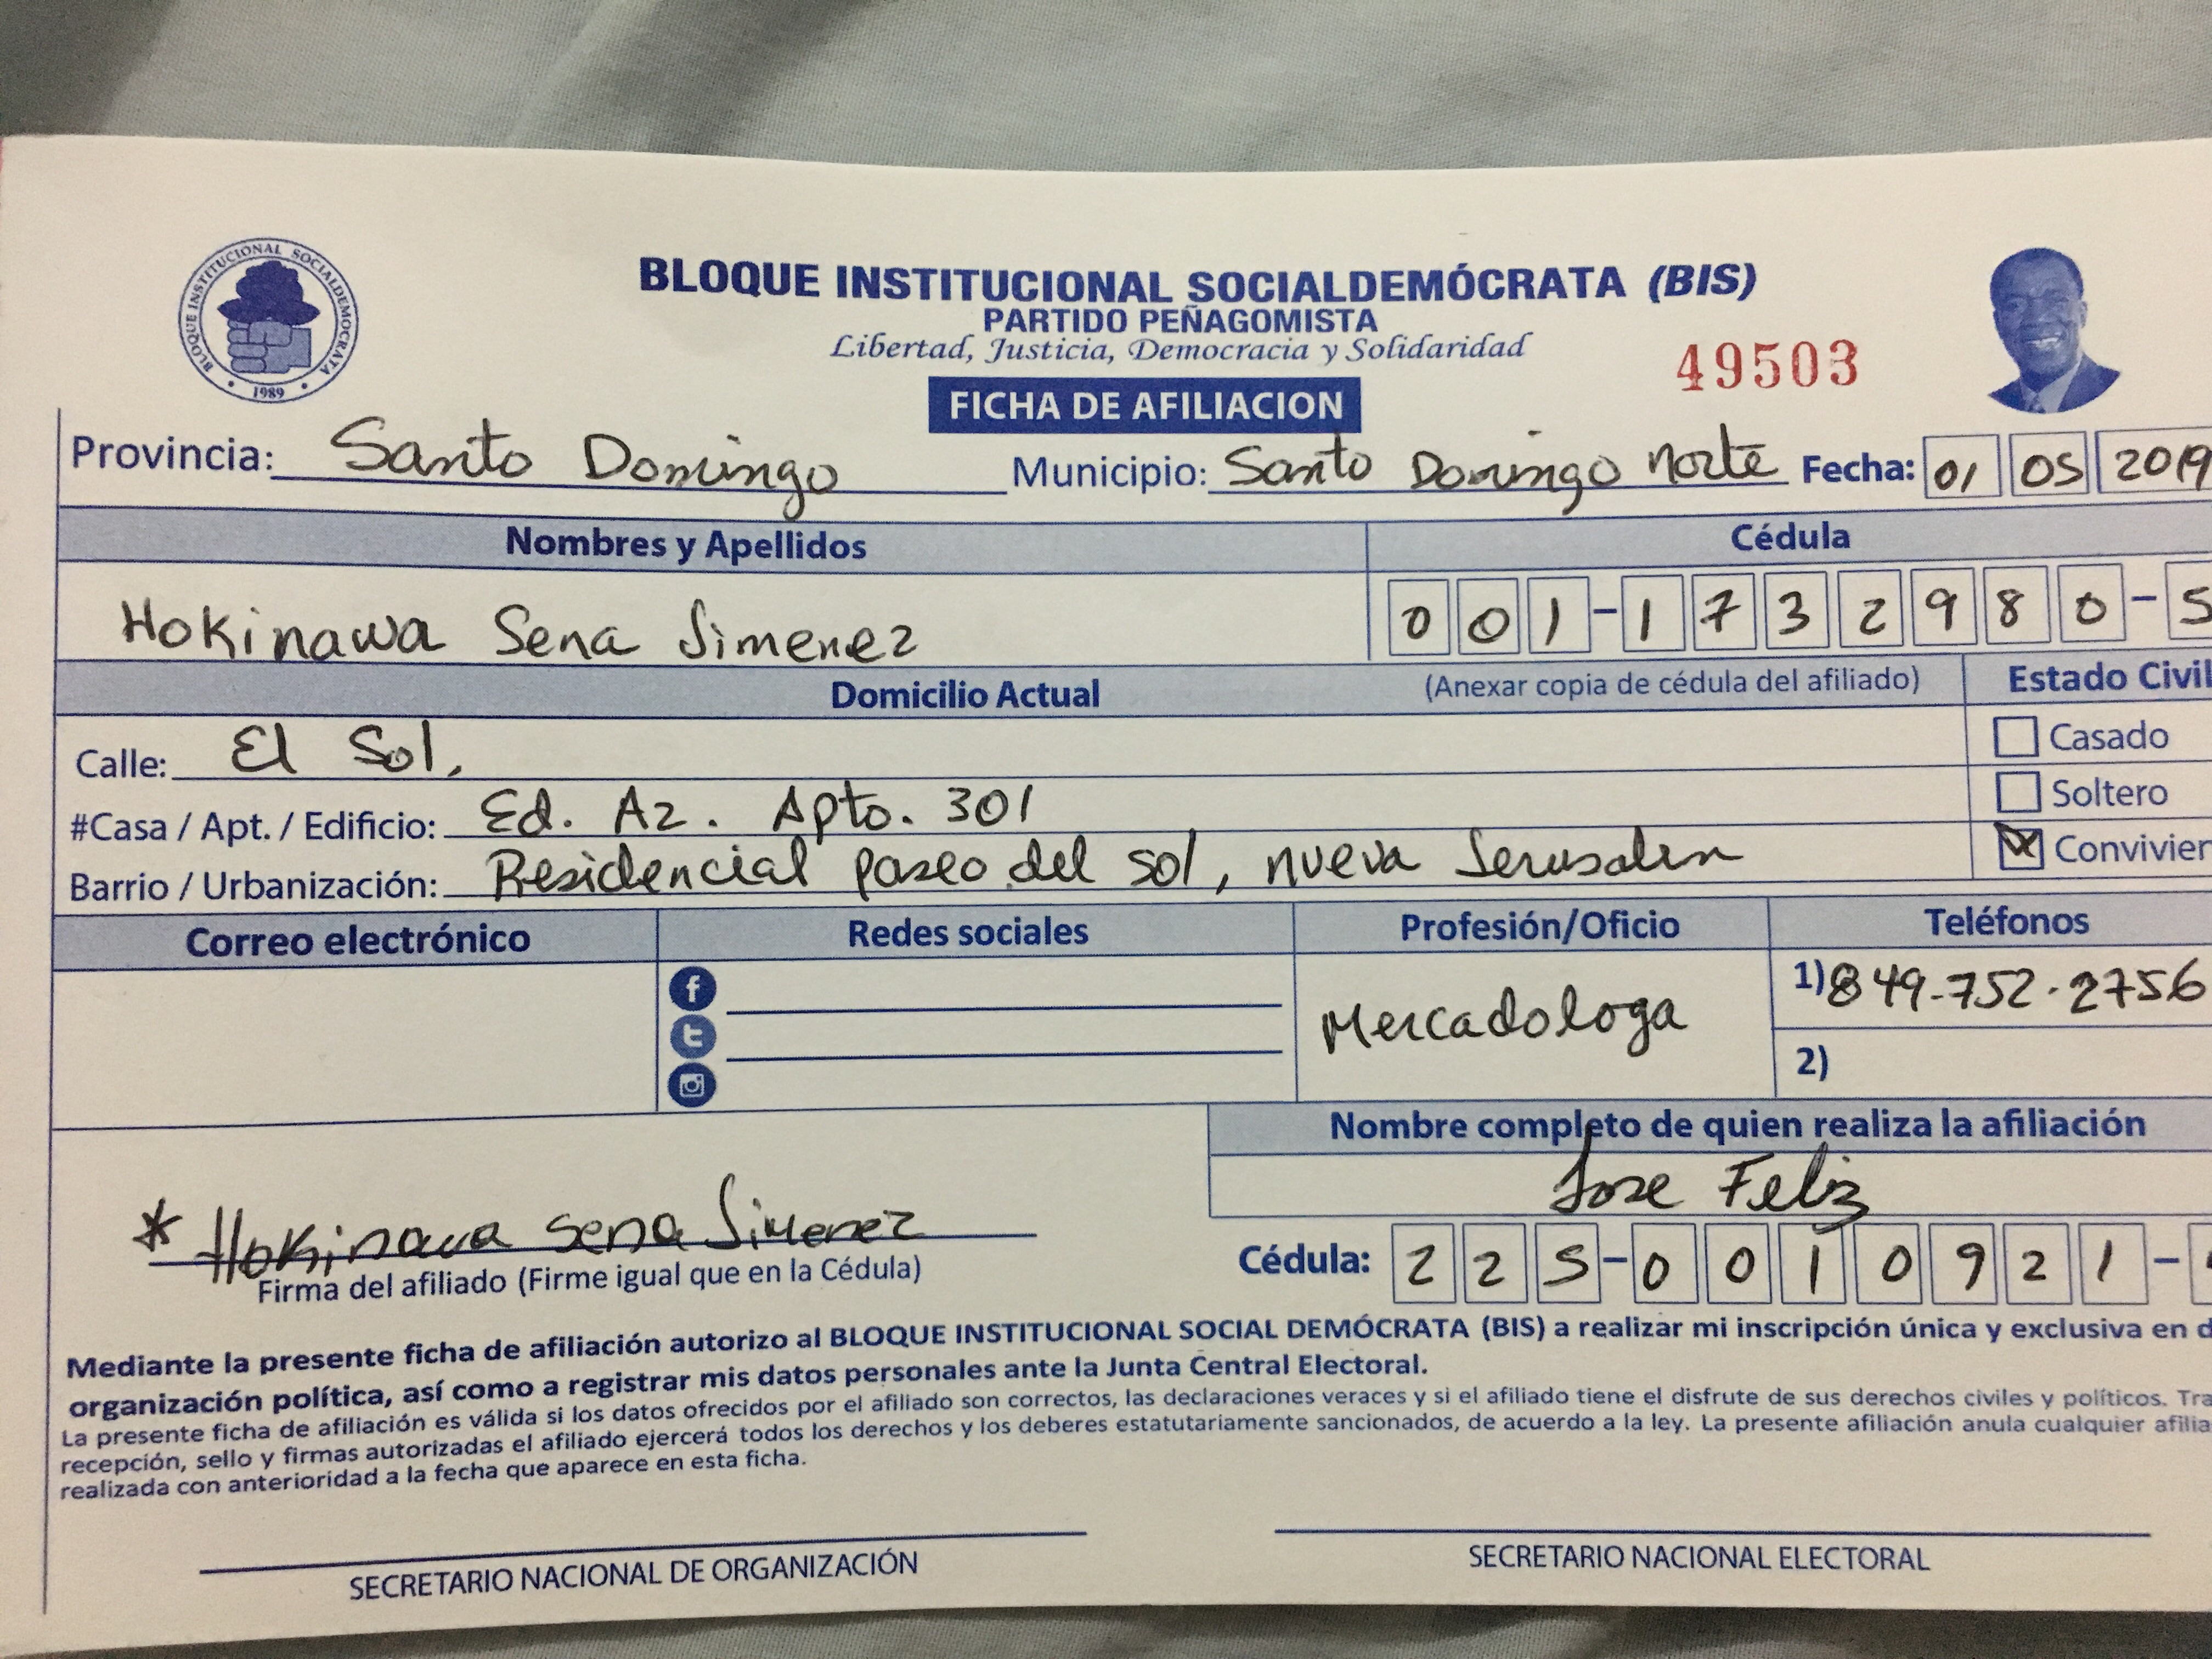 BLOQUE INSTITUCIONAL SOCIALDEMOCRATA
1989
BLOQUE INSTITUCIONAL SOCIALDEMÓCRATA (BIS)
PARTIDO PEÑAGOMISTA
Libertad, Justicia, Democracia y Solidaridad
49503
FICHA DE AFILIACION
Provincia: Santo Domingo Municipio: Santo Domingo norte Fecha: 01 05 2019
Nombres y Apellidos Cédula
Hokinawa Sena Jimenez 001-1732980-5
Domicilio Actual (Anexar copia de cédula del afiliado) Estado Civil
Calle: El Sol, Casado
#Casa / Apt. / Edificio: Ed. A2. Apto. 301 Soltero
Barrio / Urbanización: Residencial paseo del sol, nueva Jerusalen Convivien
Correo electrónico Redes sociales Profesión/Oficio Teléfonos
Mercadologa 1) 849-752-2756
2)
Nombre completo de quien realiza la afiliación
Jose Feliz
* Hokinawa Sena Jimenez
Firma del afiliado (Firme igual que en la Cédula) Cédula: 225-0010921-
Mediante la presente ficha de afiliación autorizo al BLOQUE INSTITUCIONAL SOCIAL DEMÓCRATA (BIS) a realizar mi inscripción única y exclusiva en d
organización política, así como a registrar mis datos personales ante la Junta Central Electoral.
La presente ficha de afiliación es válida si los datos ofrecidos por el afiliado son correctos, las declaraciones veraces y si el afiliado tiene el disfrute de sus derechos civiles y políticos. Tra
recepción, sello y firmas autorizadas el afiliado ejercerá todos los derechos y los deberes estatutariamente sancionados, de acuerdo a la ley. La presente afiliación anula cualquier afilia
realizada con anterioridad a la fecha que aparece en esta ficha.
SECRETARIO NACIONAL DE ORGANIZACIÓN SECRETARIO NACIONAL ELECTORAL